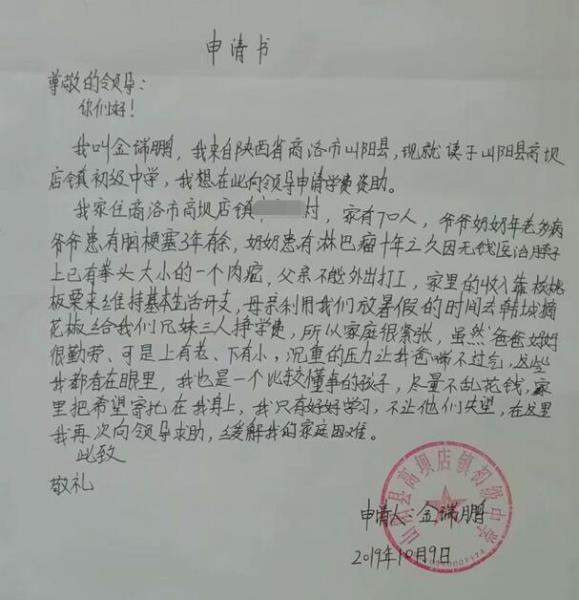 申请书
尊敬的领导：
你们好！
我叫金瑞鹏，我来自陕西省商洛市山阳县，现就读于山阳县高坝
店镇初级中学，我想在此向领导申请学费资助。
我家住商洛市高坝店镇 村，家有7口人，爷爷奶奶年老多病
爷爷患有脑梗塞3年有余，奶奶患有淋巴瘤十年之久因无钱医治脖子
上已有拳头大小的一个肉瘤，父亲不能外出打工，家里的收入靠核桃
板栗来维持基本生活开支，母亲利用我们放暑假的时间去韩城摘
花椒给我们兄妹三人挣学费，所以家庭很紧张，虽然爸爸妈妈
很勤劳、可是上有老、下有小，沉重的压力让我爸喘不过气，这些
我都看在眼里，我也是一个比较懂事的孩子，尽量不乱花钱，家
里把希望寄托在我身上，我只有好好学习，不让他们失望，在这里
我再次向领导求助，缓解我的家庭困难。
此致
敬礼
申请人：金瑞鹏
2019年10月9日
山阳县高坝店镇初级中学